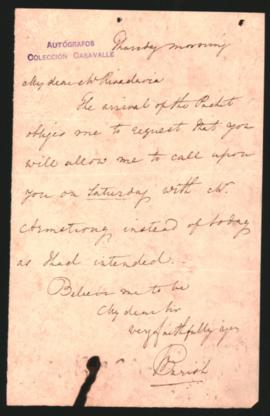 AUTÓGRAFOS
COLECCIÓN CASAVALLE
Thursday morning
My dear Mr Rivadavia
The arrival of the Packet
obliges me to request that you
will allow me to call upon
you on Saturday with Mr.
Armstrong, instead of today
as I had intended.
Believe me to be
My dear Sir
very faithfully yrs
Parish